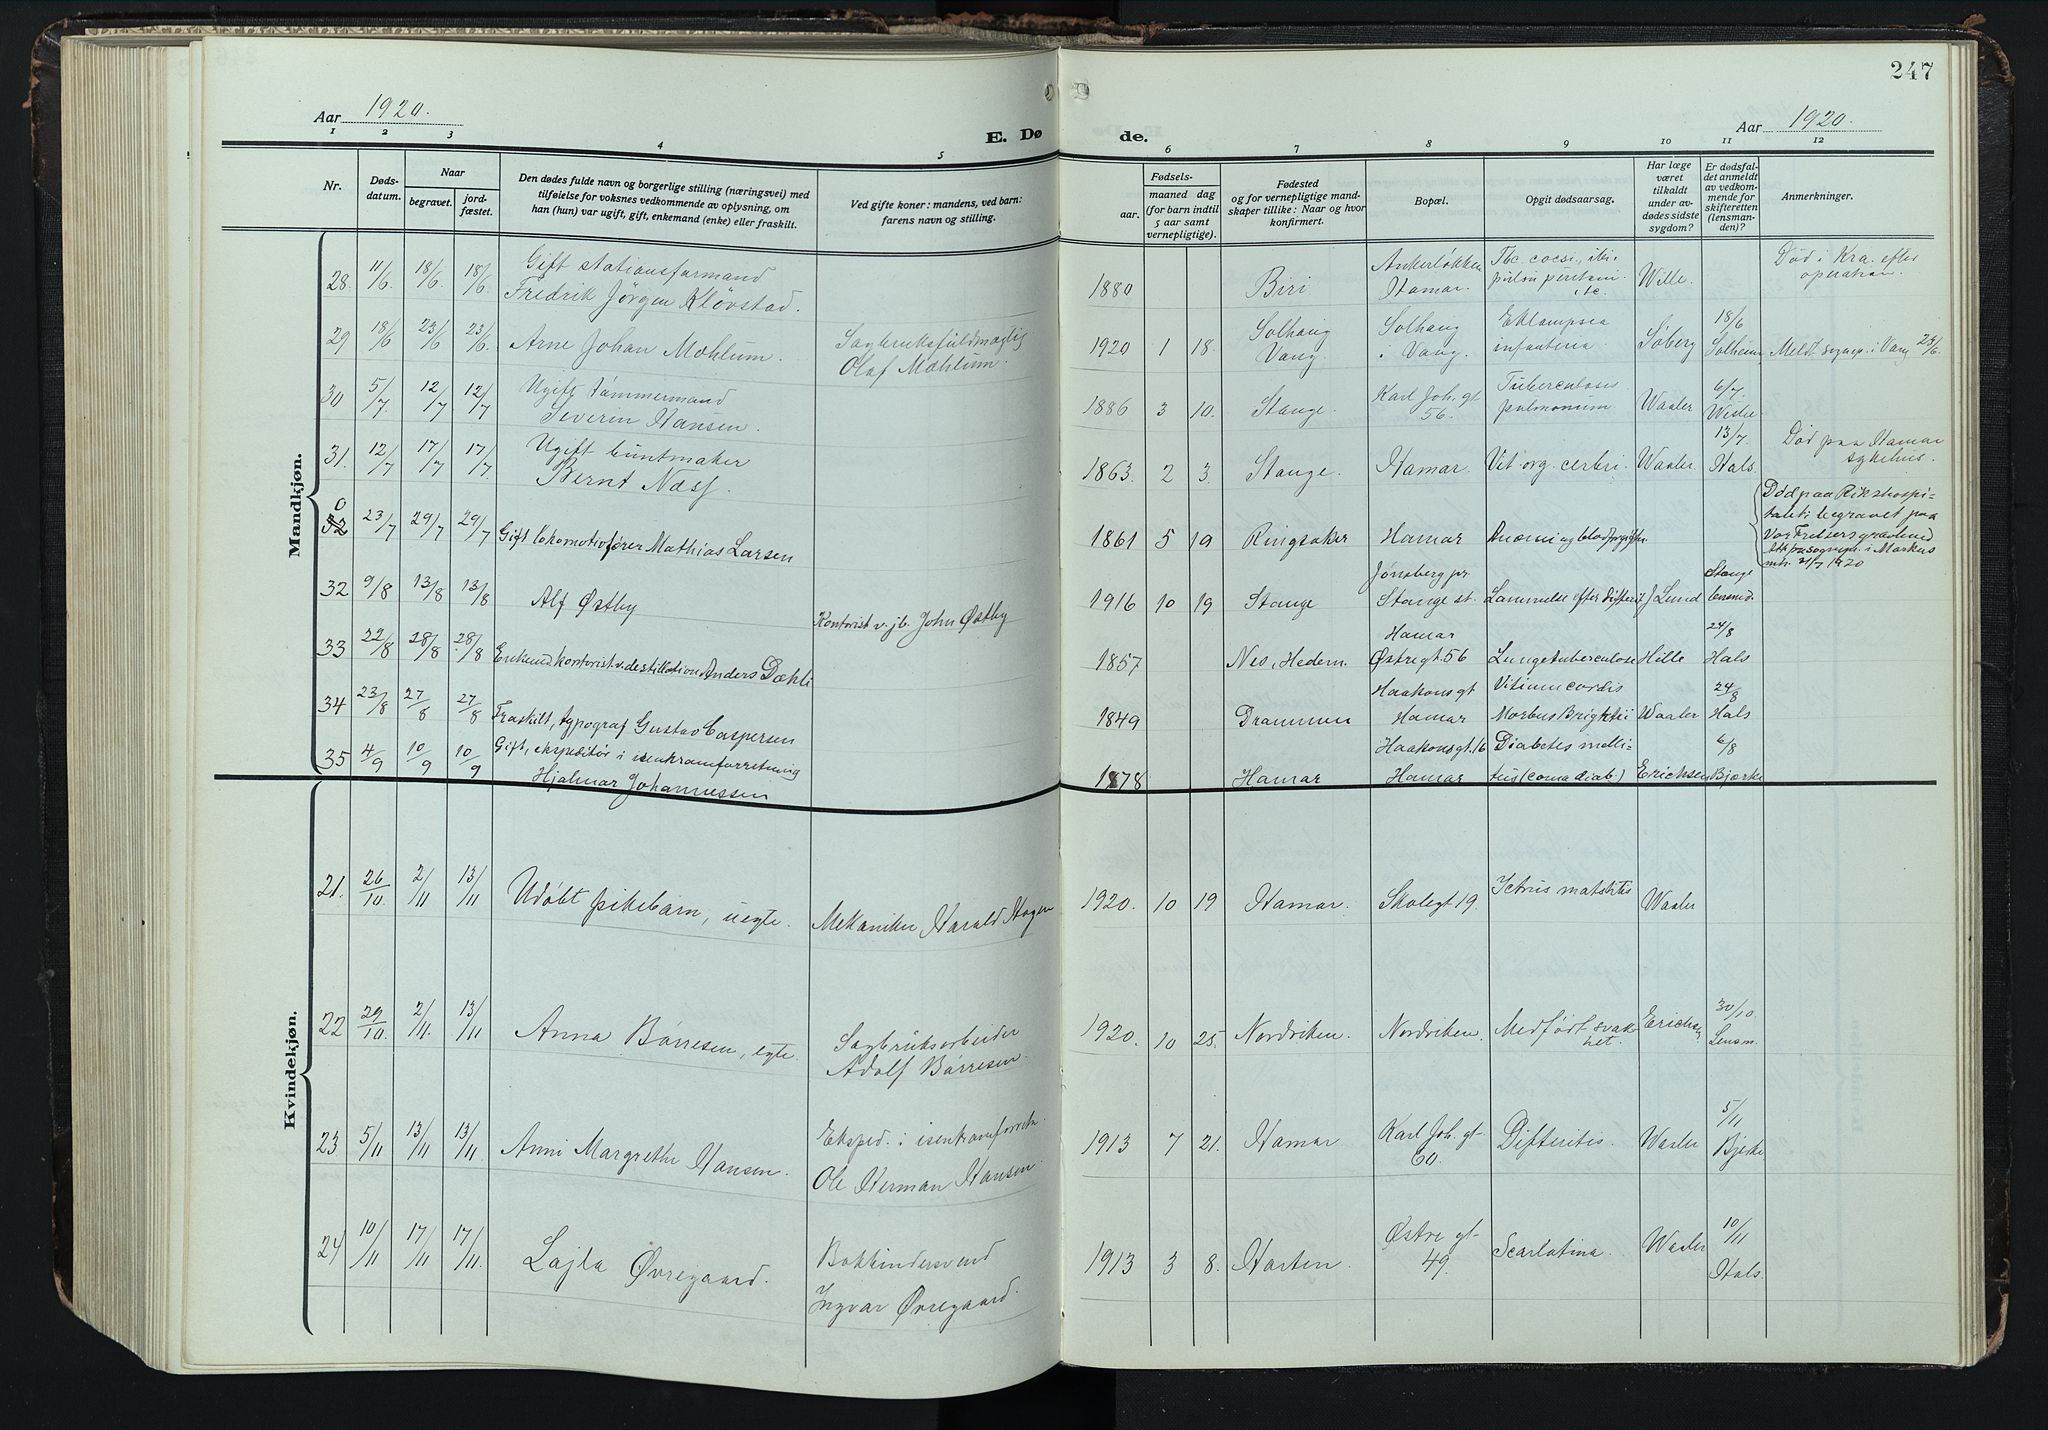 247
Aar 1920.
E. Dø
de.
Aar 1920.
1 2 3 4 5 6 7 8 9 10 11 12
Nr.
Døds-
datum.
Naar
begravet.
jord-
fæstet.
Den dødes fulde navn og borgerlige stilling (næringsvei) med
tilføielse for voksnes vedkommende av oplysning, om
han (hun) var ugift, gift, enkemand (enke) eller fraskilt.
Ved gifte koner: mandens, ved barn:
farens navn og stilling.
Fødsels-
aar.
maaned dag
(for barn indtil
5 aar samt
vernepligtige).
Fødested
og for vernepligtige mand-
skaper tillike: Naar og hvor
konfirmert.
Bopæl.
Opgit dødsaarsag.
Har læge
været
tilkaldt
under av-
dødes sidste
sygdom?
Er dødsfal-
det anmeldt
av vedkom-
mende for
skifteretten
(lensman-
den)?
Anmerkninger.
Mandkjøn.
28. 11/6. 18/6. 18/6. Gift stationsformand
Fredrik Jørgen Kløvstad.
1880 Biri Ankerløkken
Hamar. Wille. Død i Kra. efter
operation.
29 18/6 23/6 23/6. Arne Johan Mohlum. Sagbruksfuldmægtig
Olaf Mohlum.
1920 1 18. Solhaug
Vang. Solhaug
i Vang. Eklampsia
infanteria. Søberg 18/6
Solheim Meldt sognep. i Vang 23/6.
30 5/7. 12/7 12/7 Ugift tømmermand
Severin Hansen.
1886 3 10. Stange. Karl Joh. gt
56. Tuberculosis
pulmonum Waaler 6/7
31. 12/7 17/7 17/7 Ugift buntmaker
Bernt Næss.
1863. 2 3. Stange. Hamar. Vit. org. cerbri. Waaler. 13/7.
Hals. Død paa Hamar
sykehus.
0
32 23/7 29/7 29/7 Gift lokomotivfører Mathias Larsen
1861 5 19 Ringsaker Hamar Død paa Rikshospi-
talet; begravet paa
Vor Frelsers gravlund
32 9/8 13/8 13/8 Alf Østby Kontorist v. jb. John Østby
1916 10 19 Stange Jønsberg pr.
Stange st. Lammelse efter difteri J Lund Stange
lensmd.
33 22/8 28/8 28/8 Enkemd kontorist v. destillationen Anders Dæhli
1857 Nes, Hedem. Hamar
Østregt. 56 Lungetuberculose Hille 24/8
Hals
34 23/8 27/8 27/8 Fraskilt, typograf Gustav Caspersen
1849 Drammen Haakonsgt
Hamar Vitium cordis
Morbus Brightii Waaler 24/8
Hals
35 4/9 10/9 10/9 Gift, ekspeditør i isenkramforretning
Hjalmar Johannessen
1878 Hamar Haakonsgt. 16
Hamar Diabetes melli-
tus (coma diab.) Erichsen 6/8
Bjerke
Kvindekjøn.
21. 26/10 2/11 13/11 Udøbt pikebarn, uegte. Mekaniker Harald Hagen
1920. 10 19 Hamar. Skolegt 19. Waaler
22 29/10. 2/11. 13/11 Anna Børresen, egte. Sagbruksarbeider
Adolf Børresen.
1920. 10 25. Nordviken. Nordviken. Medfødt svak-
het. Erichsen 30/10.
Lensm.
23 5/11 13/11 13/11 Anni Margrethe Hansen. Eksped. i isenkramforretn.
Ole Herman Hansen.
1913 7 21. Hamar Karl Joh. gt
60. Difteritis. Waaler 5/11
Bjerke
24 10/11 17/11 17/11 Lajla Øvregaard. Bokbindersvend
Ingvar Øvregaard.
1913 3 8. Horten. Østre gt
49. Scarlatina. Waaler 10/11
Hals.